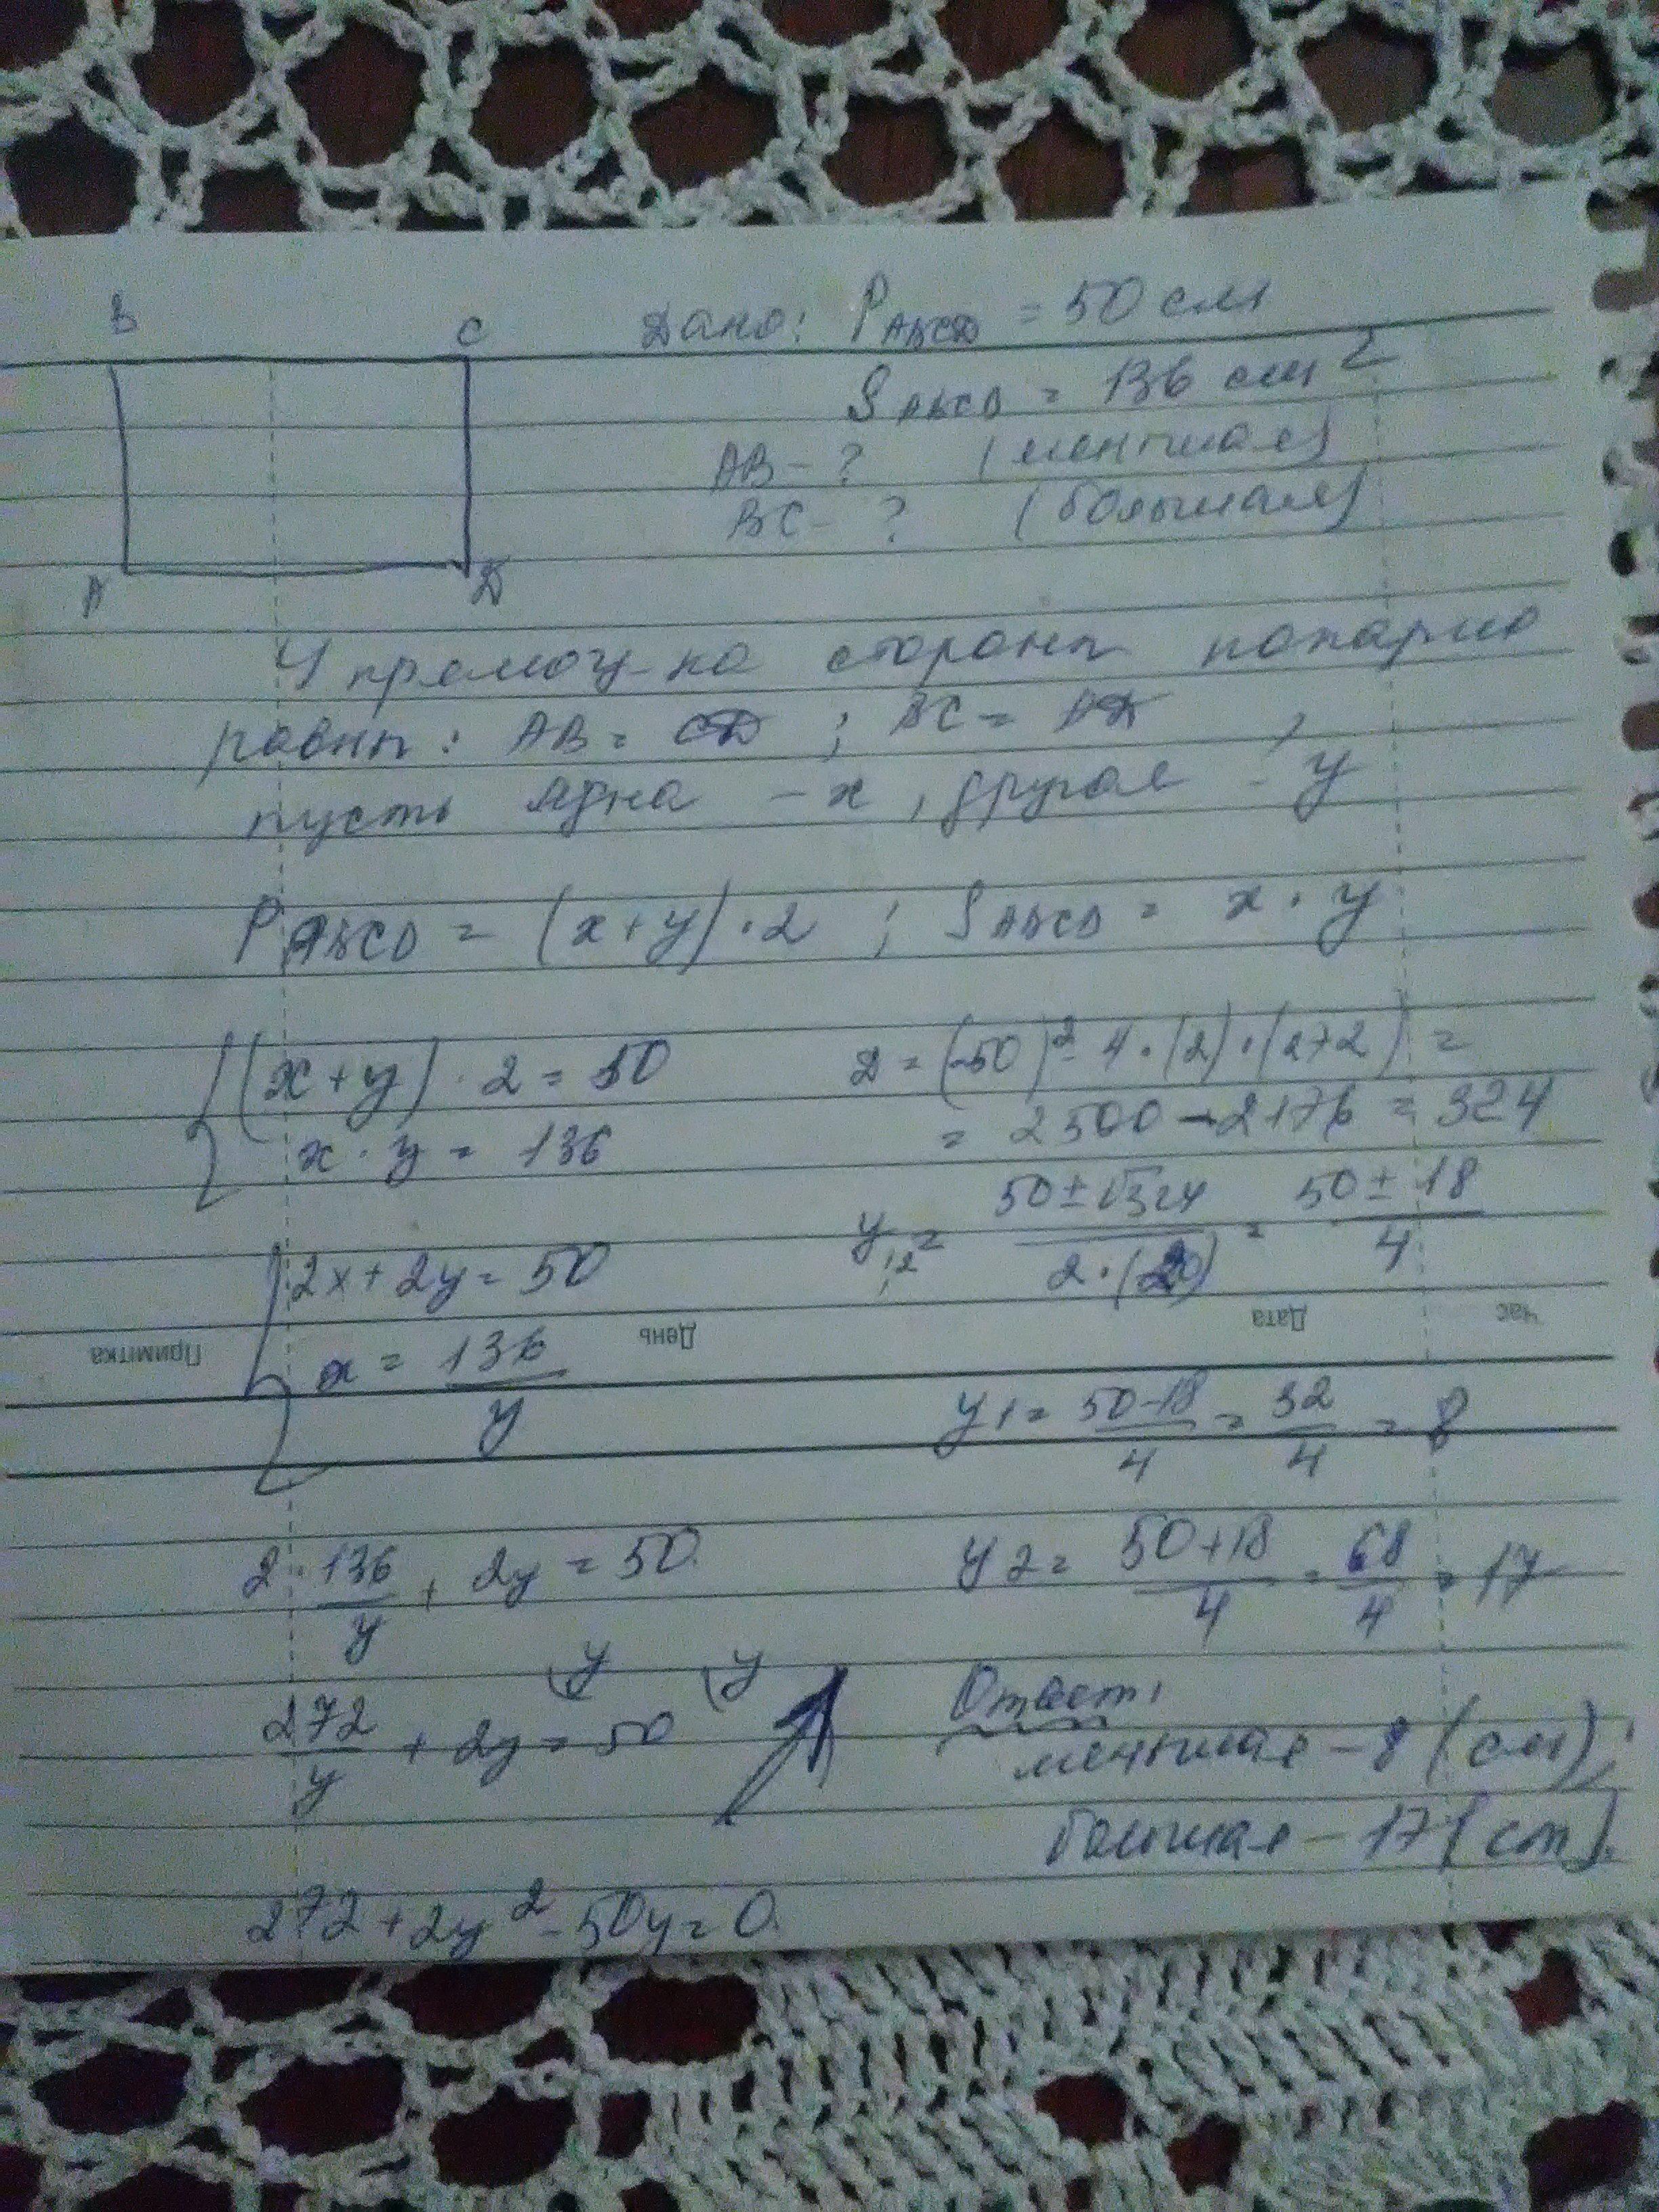 B
C
A
D
Дано: P ABCD = 50 см
S ABCD = 136 см²
AB - ? (меньшая)
BC - ? (большая)
У прямоуг-ка стороны попарно
равны: AB = CD ; BC = AD ,
пусть одна - x , другая - y
P ABCD = (x+y)·2 ; S ABCD = x · y
(x+y)·2 = 50
x · y = 136
2x + 2y = 50
x = 136/y
2 · 136/y + 2y = 50
\y \y
272/y + 2y = 50
272 + 2y² - 50y = 0
D = (-50)² - 4·(2)·(272) =
= 2500 - 2176 = 324
y1,2 = (50±√324)/(2·(2)) = (50±18)/4
Примітка День Дата Час
y1 = (50-18)/4 = 32/4 = 8
y2 = (50+18)/4 = 68/4 = 17
Ответ:
меньшая - 8 (см);
большая - 17 (см).